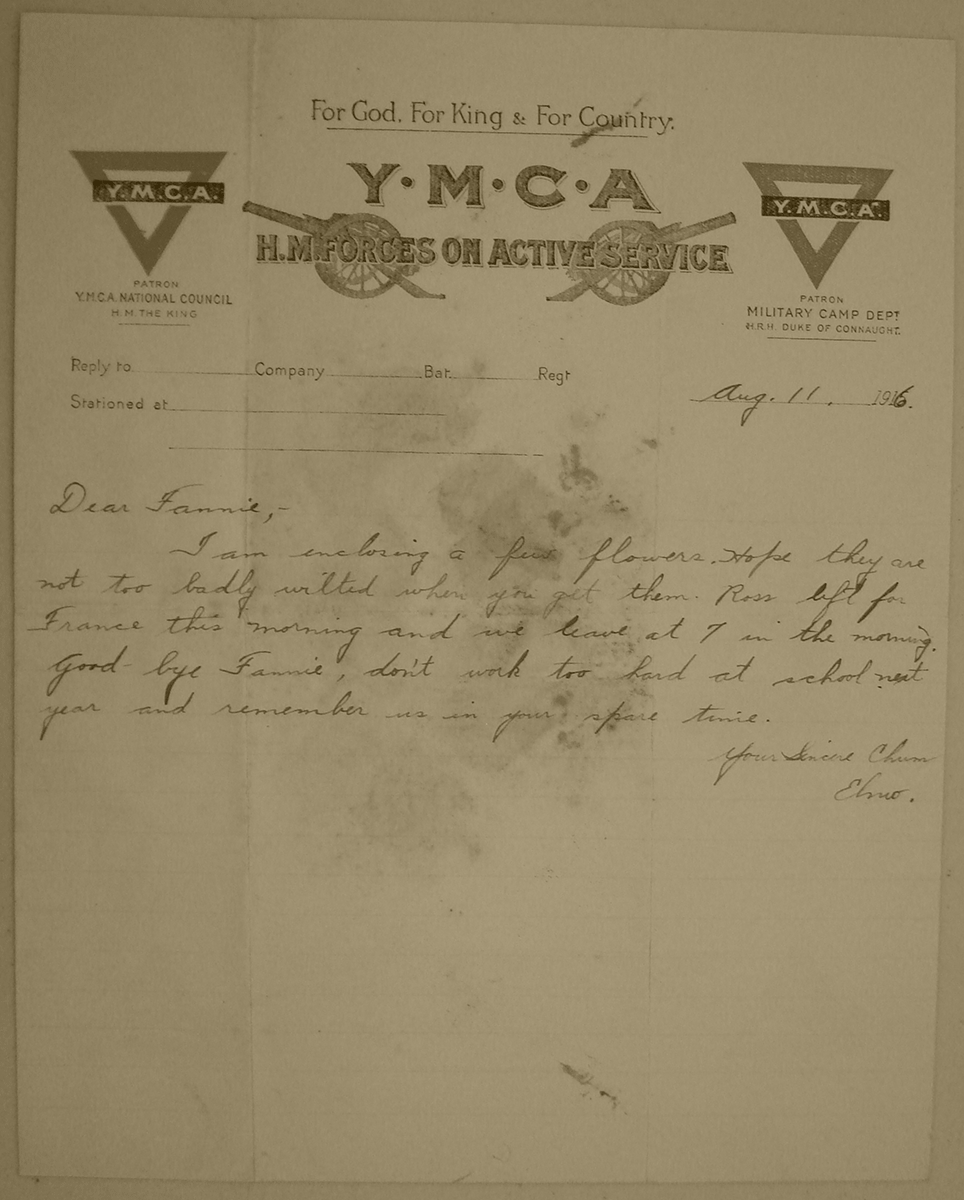 For God, For King & For Country.
Y·M·C·A
H.M. FORCES ON ACTIVE SERVICE
Y.M.C.A.
PATRON
Y.M.C.A. NATIONAL COUNCIL
H. M. THE KING
Y.M.C.A.
PATRON
MILITARY CAMP DEPT
H.R.H. DUKE OF CONNAUGHT.
Reply to Company Bat. Regt
Stationed at
Aug. 11, 1916.
Dear Fannie,-
I am enclosing a few flowers. Hope they are
not too badly wilted when you get them. Ross left for
France this morning and we leave at 7 in the morning.
Good-bye Fannie, don't work too hard at school next
year and remember us in your spare time.
Your Sincere Chum
Elmo.